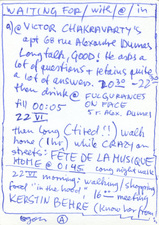 WAITING FOR/with/@/in
a) @ VICTOR CHAKRAVARTY's
apt 68 rue Alexandre Dumas
Long talk, GOOD! He asks a lot
of questions + retains quite
a lot of answers. 20:30 - 22:30
then drink @ FULGURANCES
EN FACE
till 00:05 5 r. Alex. Dumas
22 VI
then long (tired!!) walk
home (1 hr) while CRAZY on
streets: FÊTE DE LA MUSIQUE
HOME @ 0145 long night walk
22 VI morning: walking/shopping
food "in the hood" 16:00 meeting
KERSTIN BEHRE (know her from